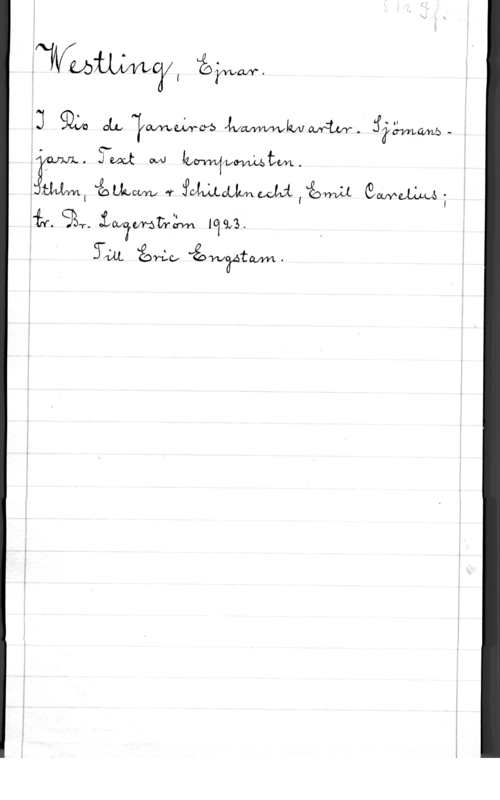 Westling, Ejnar.
I Rio de Janeiros hamnkvarter. Sjömans-
jazz. Text av komponisten.
Sthlm, Elkan & Schildknecht, Emil Carelius;
tr. Br. Lagerström 1923.
Till Eric Engstam.